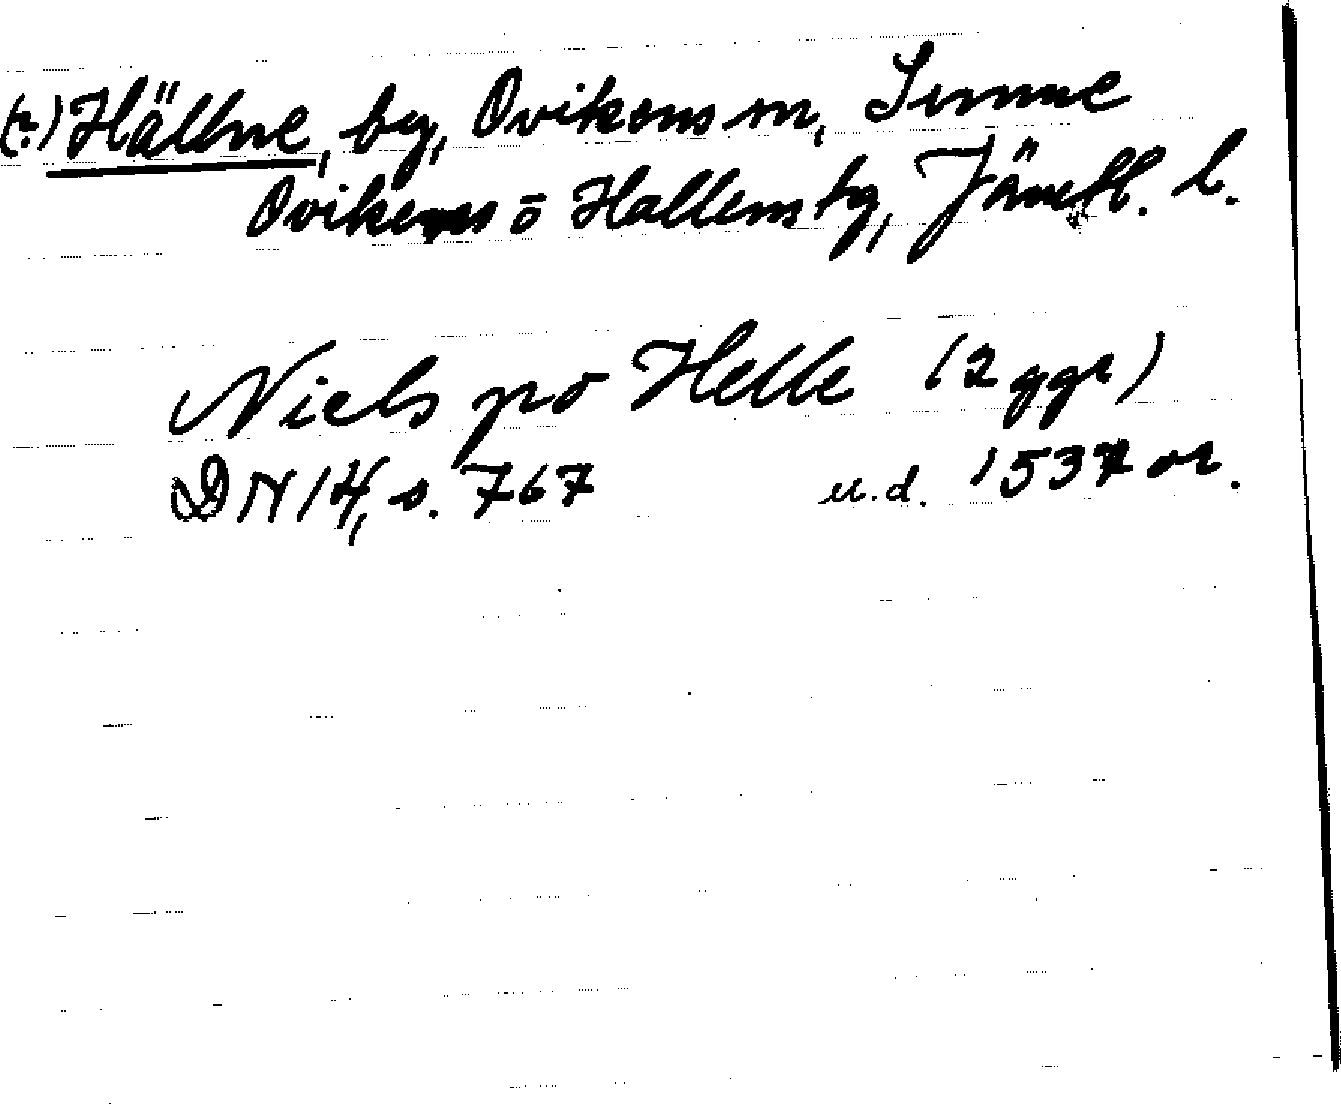 (?) Hällne, by, Ovikens sn, Sunne
Ovikens o Hallens tg, Jämtl. l.
Niels po Helle (2 ggr)
DN 14, s. 767 u.d. 1537 or.